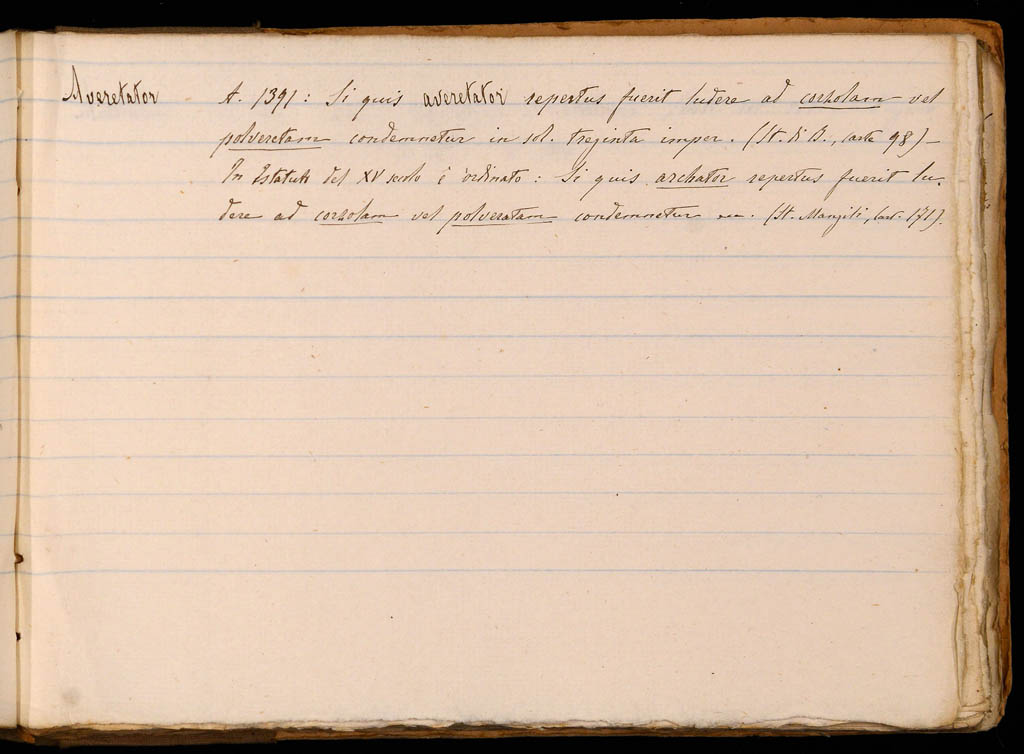 Averetator A. 1391: Si quis averetator repertus fuerit ludere ad corzolam vel
polveretam condemnetur in sol. treginta imper. (St. di B., carte 98) –
In Estatuti del XV secolo è ordinato: Si quis archator repertus fuerit lu-
dere ad corzolam vel polveratam condemnetur (St. Mangili, cart. 171).